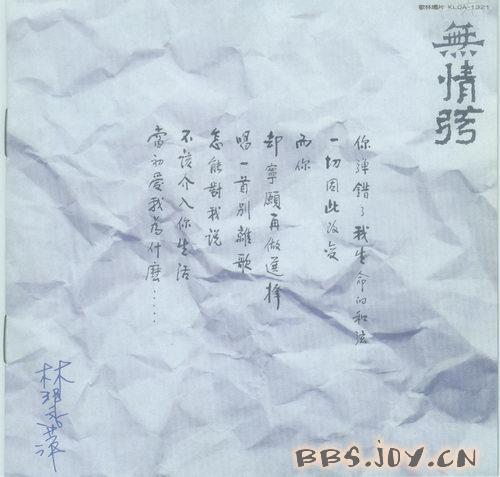 歌林唱片
無情弦
你彈錯了我生命的和弦
一切因此改变
而你
却寧願再做選擇
唱一首別離歌
怎能對我說
不該介入你生活
當初愛我為什麼.....
林翠萍
BBS.JOY.CN